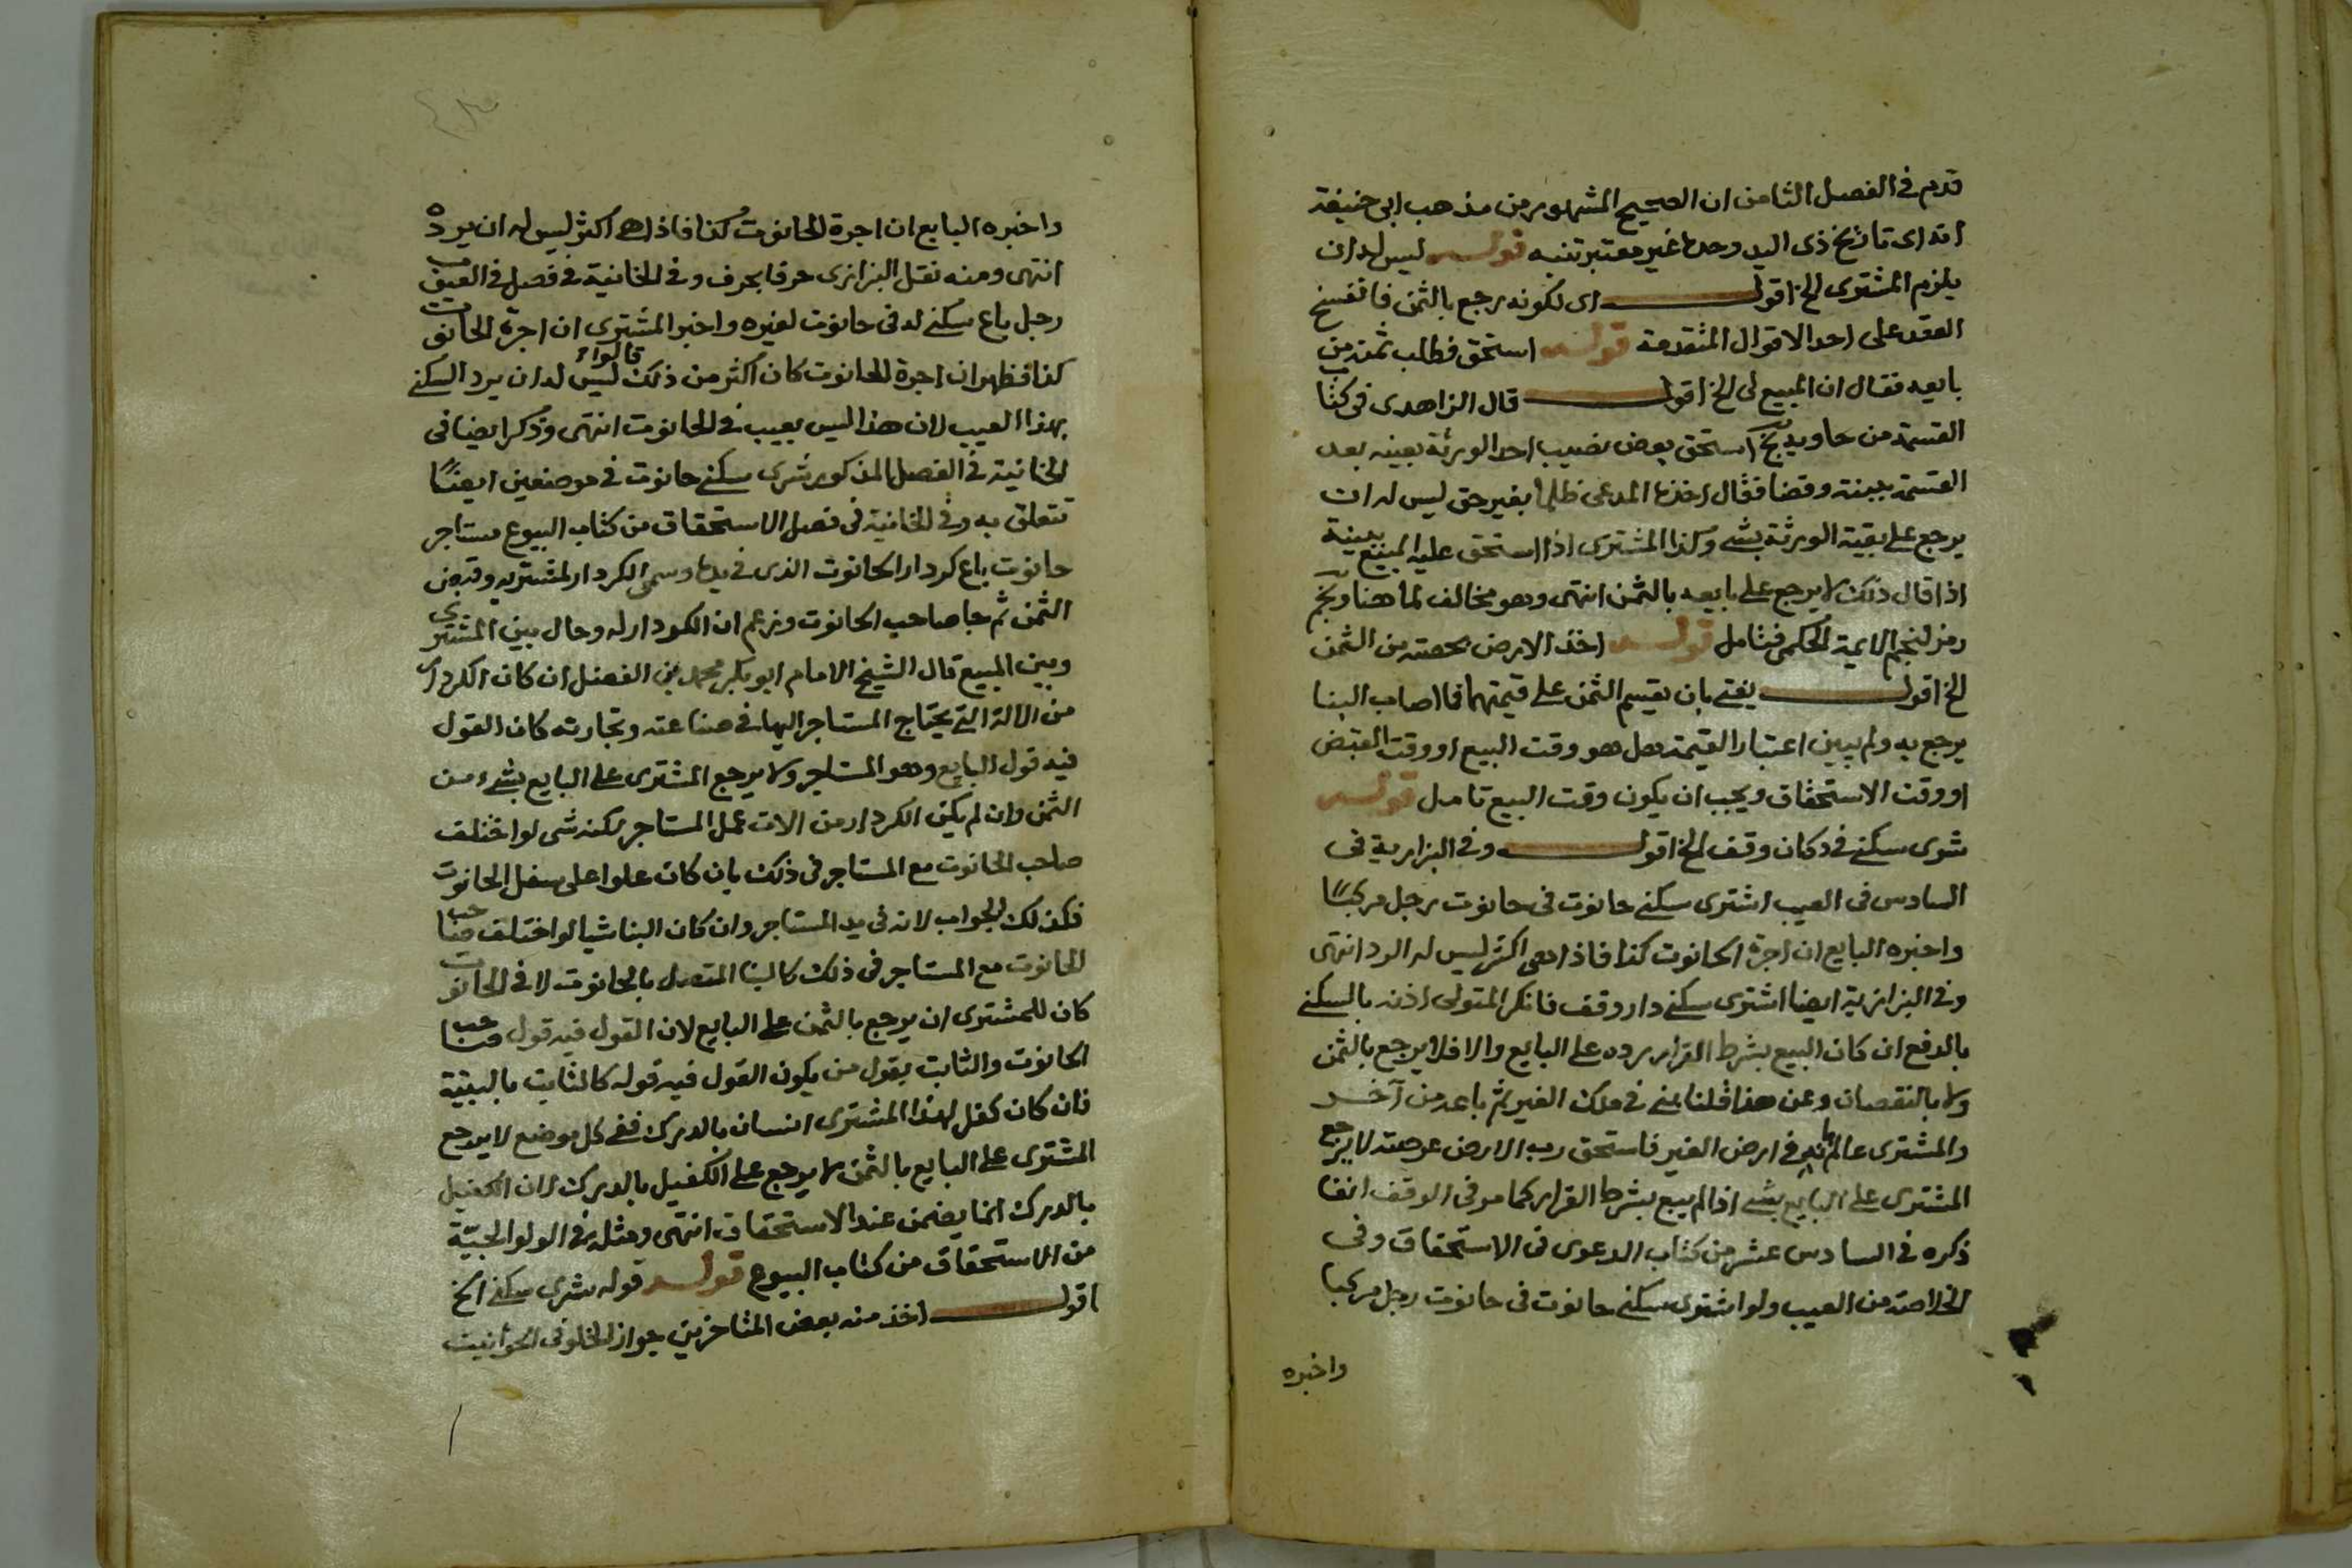 قدم في الفصل الثامن ان الصحيح المشهور من مذهب ابي حنيفة
انه اي تاريخ ذي اليد وحده غير معتبر تنبه قوله ليس له ان
يلزم المشتري الخ اقول اي لكونه رجع بالثمن فانفسخ
العقد على احد الاقوال المتقدمة قوله استحق فطلب ثمنه من
بايعه فقال ان المبيع لي الخ اقول قال الزاهدي في كتاب
القسمة من حاويه نج استحق بعض نصيب احد الورثة بعينه بعد
القسمة ببينة وقضا فقال اخذها المدعي ظلما بغير حق ليس له ان
يرجع على بقية الورثة بشي وكذا المشتري اذا استحق عليه المبيع ببينة
اذا قال ذلك لا يرجع على بايعه بالثمن انتهى وهو مخالف لما هنا ونج
رمز لنجم الايمة الحكمي فتامل قوله اخذ الارض بحصته من الثمن
الخ اقول يفتى بان يقسم الثمن على قيمتهما فما اصاب البنا
يرجع به ولم يبين اعتبار القيمة هل هو وقت البيع او وقت القبض
او وقت الاستحقاق ويجب ان يكون وقت البيع تامل قوله
شرى سكنى في دكان وقف الخ اقول وفي البزازية في
السادس في العيب اشترى سكنى حانوت في حانوت رجل مركبا
واخبره البايع ان اجرة الحانوت كذا فاذا هي اكثر ليس له الرد انتهى
وفي البزازية ايضا اشترى سكنى دار وقف فانكر المتولي اذنه بالسكنى
بالدفع ان كان البيع بشرط القرار رده على البايع والا فلا يرجع بالثمن
ولا بالنقصان وعن هذا قلنا بنى في ملك الغير ثم باعه من آخر
والمشتري عالم بانه في ارض الغير فاستحق رب الارض عرصته لا يرجع
المشتري على البايع بشي اذا لم يبع بشرط القرار كما مر في الوقف انفا
ذكره في السادس عشر من كتاب الدعوى في الاستحقاق وفي
الخلاصة من العيب ولو اشترى سكنى حانوت في حانوت رجل مركبا
واخبره
واخبره البايع ان اجرة الحانوت كذا فاذا هي اكثر ليس له ان يرده
انتهى ومنه نقل البزازي حرفا بحرف وفي الخانية في فصل في العيوب
رجل باع سكنى له في حانوت لغيره واخبر المشتري ان اجرة الحانوت
كذا فظهر ان اجرة الحانوت كان اكثر من ذلك قالوا ليس له ان يرد السكنى
بهذا العيب لان هذا ليس بعيب في الحانوت انتهى وذكر ايضا في
الخانية في الفصل المذكور شرى سكنى حانوت في موضعين ايضا
تتعلق به وفي الخانية في فصل الاستحقاق من كتاب البيوع مستاجر
حانوت باع كردار الحانوت الذي في يده وسمى الكردار لمشتريه وقبض
الثمن ثم جا صاحب الحانوت وزعم ان الكردار له وحال بين المشتري
وبين المبيع قال الشيخ الامام ابو بكر محمد بن الفضل ان كان الكردار
من الالة التي يحتاج المستاجر اليها في صناعته وتجارته كان القول
فيه قول البايع وهو المستاجر ولا يرجع المشتري على البايع بشيء من
الثمن وان لم يكن الكردار من الات عمل المستاجر لكنه شي لو اختلف
صاحب الحانوت مع المستاجر في ذلك بان كان علوا على سفل الحانوت
فكذلك الجواب لانه في يد المستاجر وان كان البنا شيا لو اختلف صاحب
الحانوت مع المستاجر في ذلك كالبنا المتصل بالحانوت لا في الحانوت
كان للمشتري ان يرجع بالثمن على البايع لان القول فيه قول صاحب
الحانوت والثابت بقول من يكون القول فيه قوله كالثابت بالبينة
فان كان كفل لهذا المشتري انسان بالدرك ففي كل موضع لا يرجع
المشتري على البايع بالثمن لا يرجع على الكفيل بالدرك لان الكفيل
بالدرك انما يضمن عند الاستحقاق انتهى ومثله في الولوالجية
من الاستحقاق من كتاب البيوع قوله قوله شرى سكنى الخ
اقول اخذ منه بعض المتاخرين جواز الخلو في الحوانيت